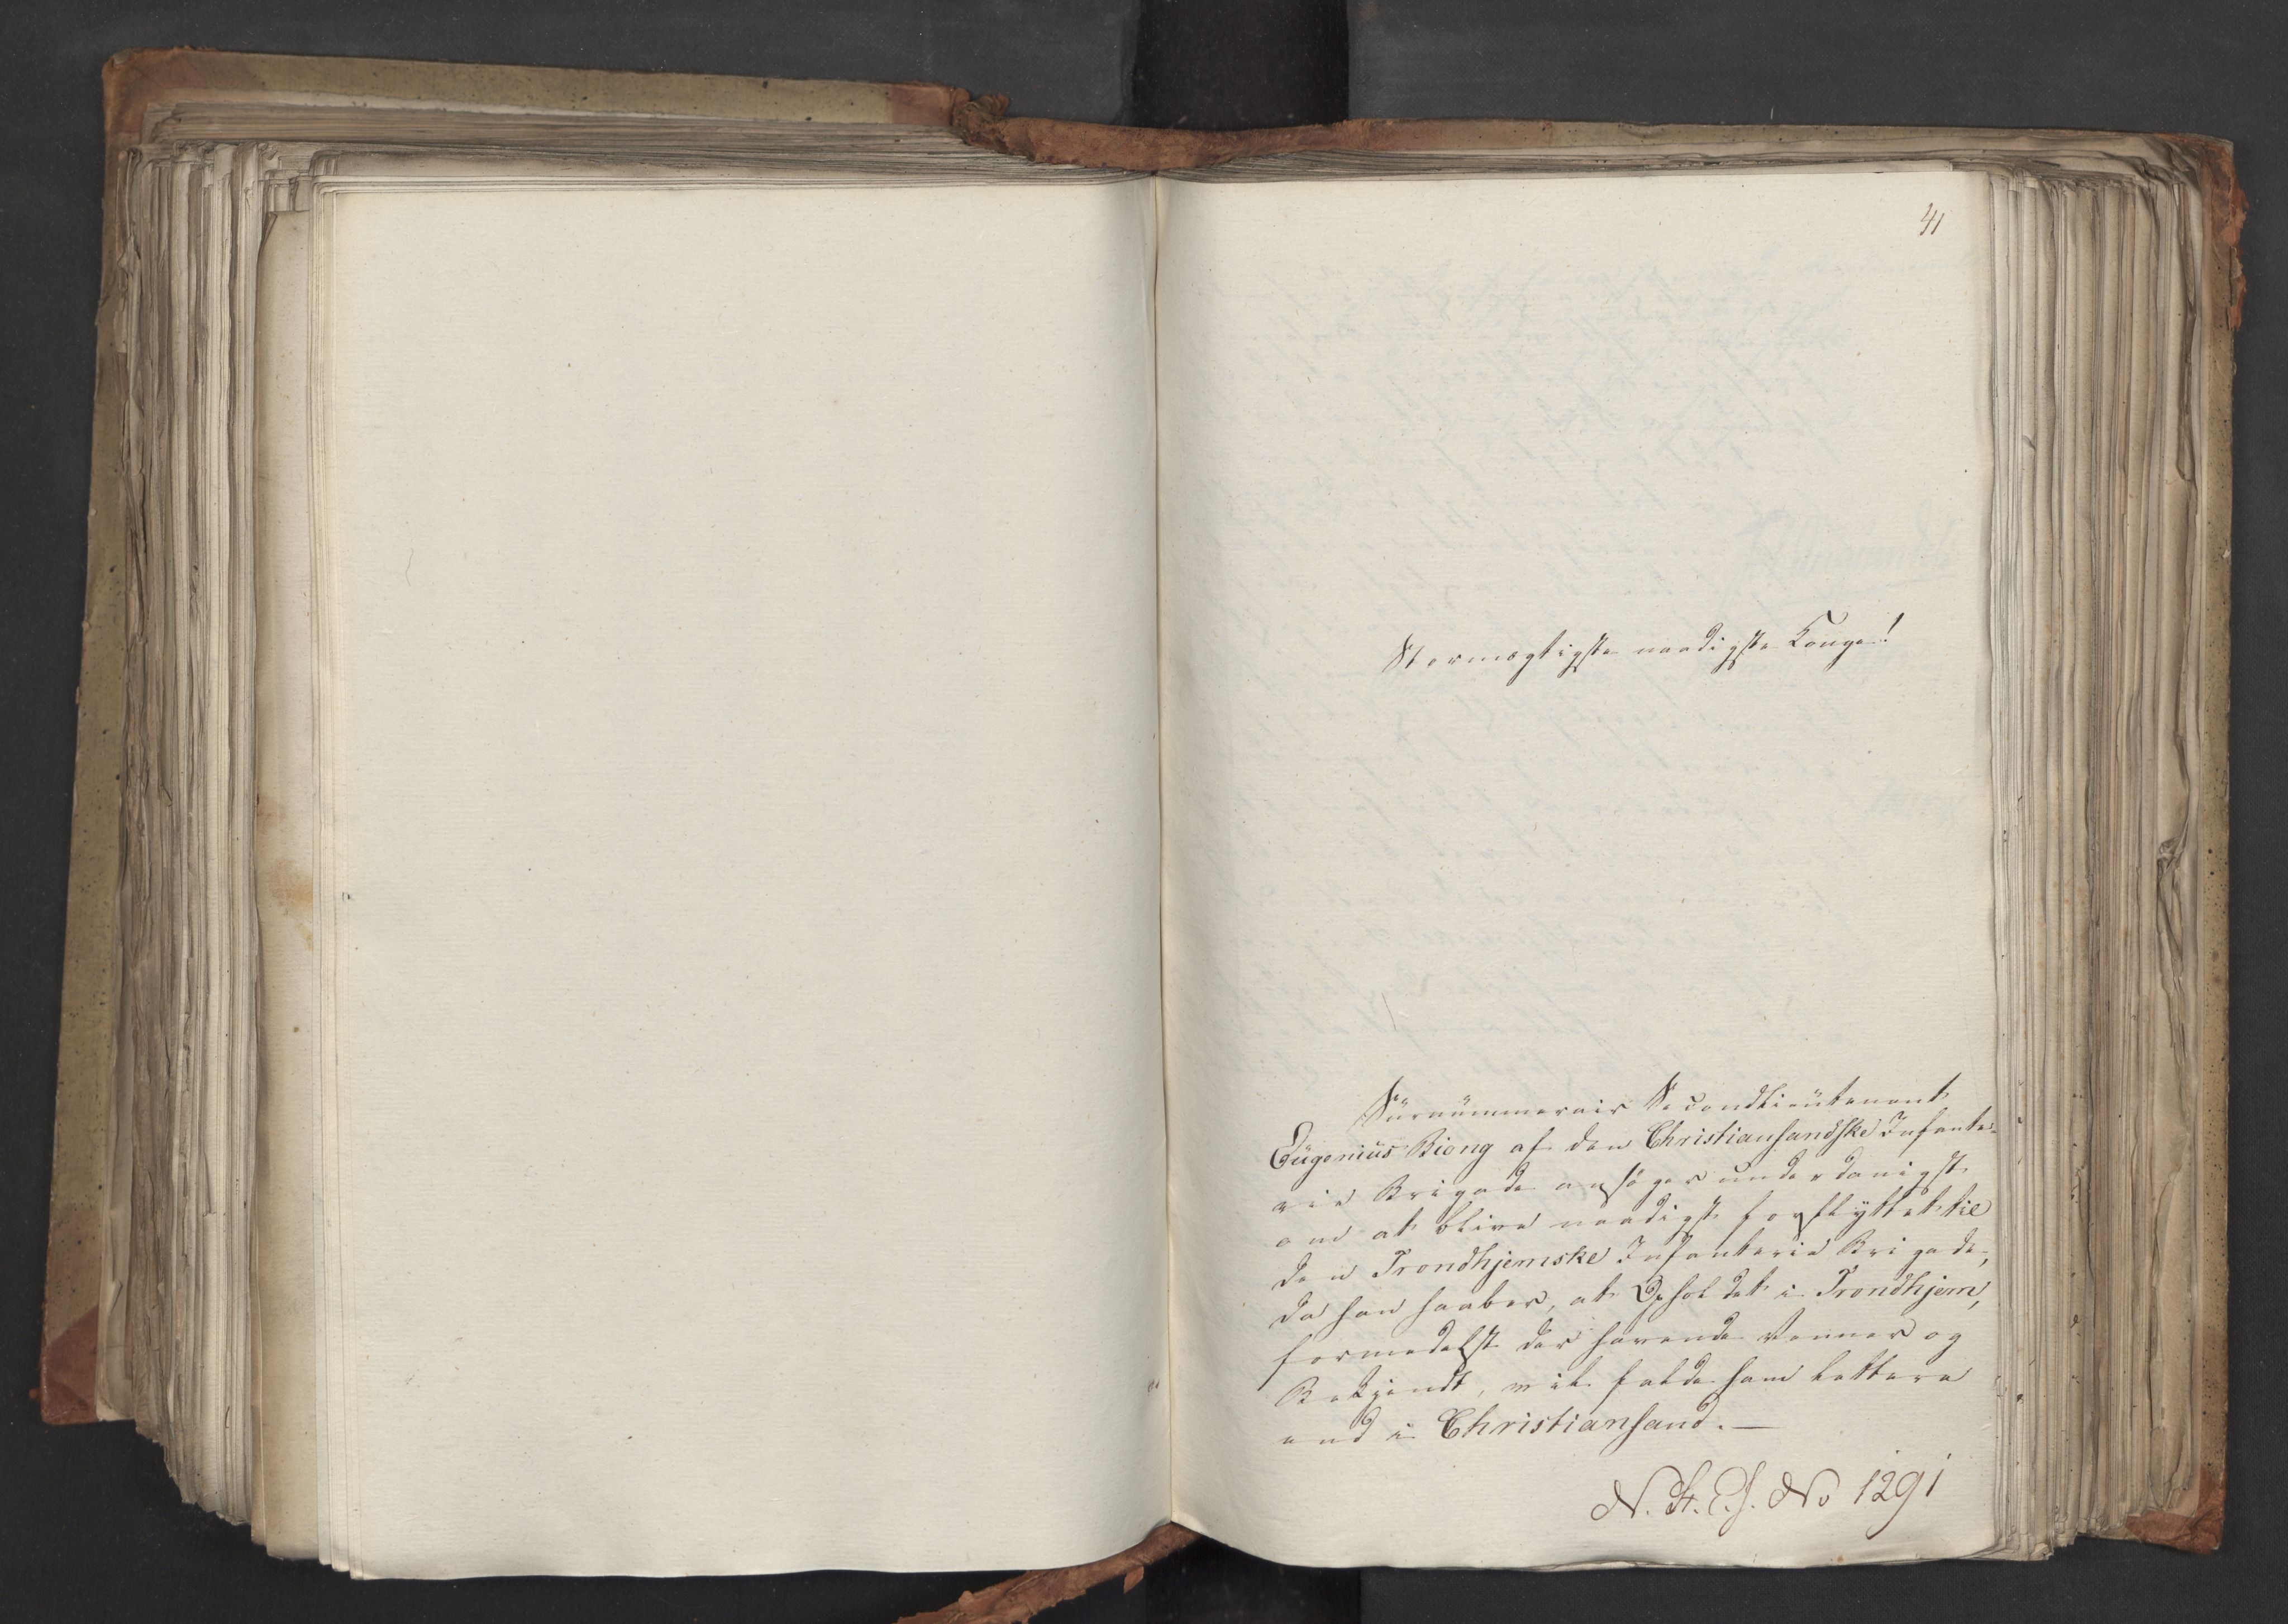 41
Stormægtigste naadigste Konge!
Sürnümmerair Secondlieütenant
Eügeniüs Biong af den Christiansandske Infante-
rie Brigade ansöger underdanigst
om at blive naadigst forflyttet til
den Trondhjemske Infanterie Brigade,
da han haaber, at Opholdet i Trondhjem,
formedelst der havende Venner og
Bekjendt, vil falde ham lettere
end i Christiansand.—
N. St. E. J. No 1291